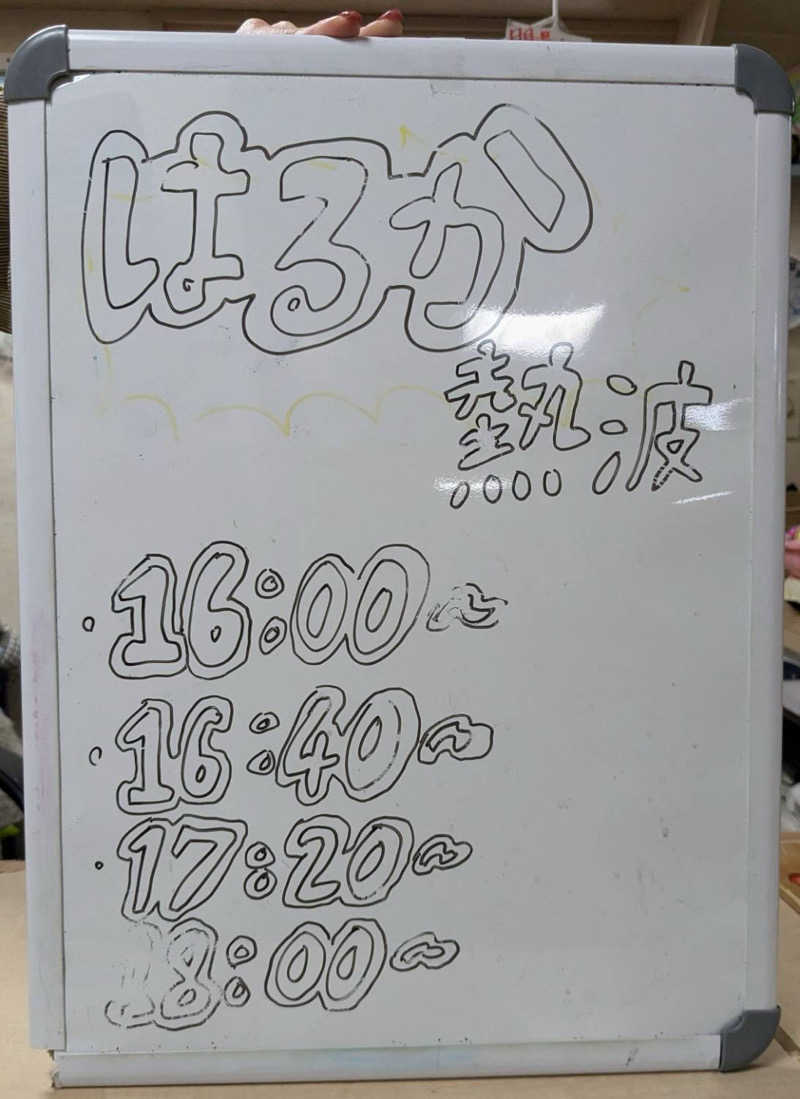 はるか
熱波
・16:00～
・16:40～
・17:20～
18:00～